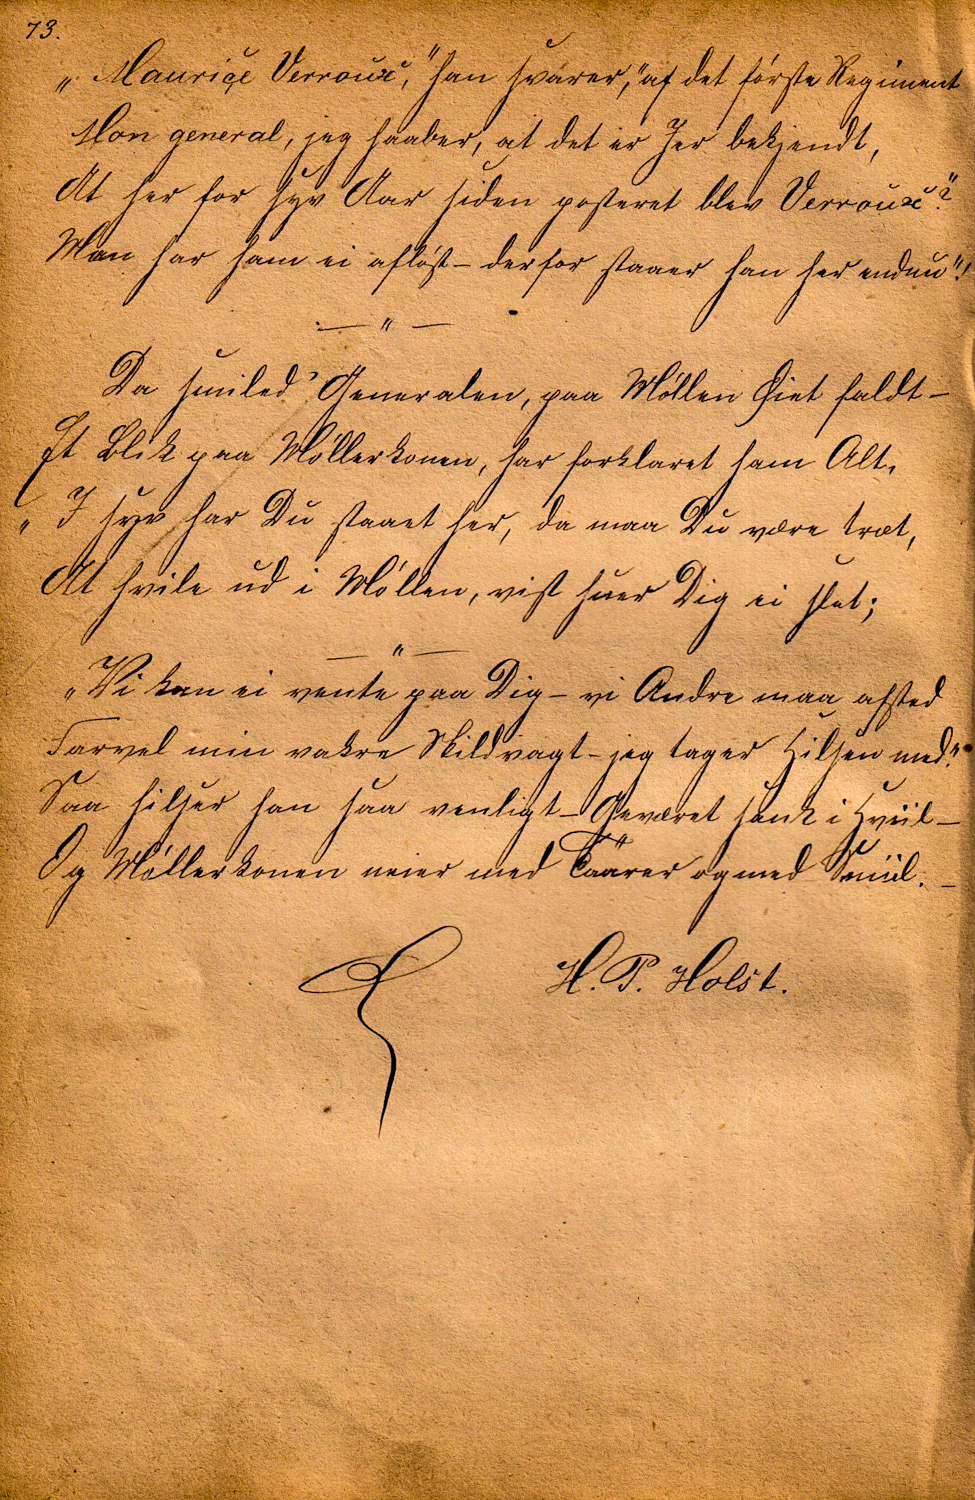 73.
„Mauriçe Verroux," han svarer, "af det første Regiment
Mon general, jeg haaber, at det er Jer bekjendt,
At her for syv Aar siden posteret blev Verroux"?
Man har ham ei afløst – derfor staaer han her endnu"!
— " —
Da smiled' Generalen, paa Møllen Øiet faldt –
Et Blik paa Møllerkonen, har forklaret ham Alt.
„I syv har Du staaet her, da maa Du være træt,
At hvile ud i Møllen, vist huer Dig ei slet;
— " —
„Vi kan ei vente paa Dig – vi Andre maa afsted
Farvel min vakre Skildvagt – jeg tager Hilsen med."
Saa hilser han saa venligt – Geværet sank i Hviil –
Og Møllerkonen neier med Taarer og med Smiil. –
H. P. Holst.